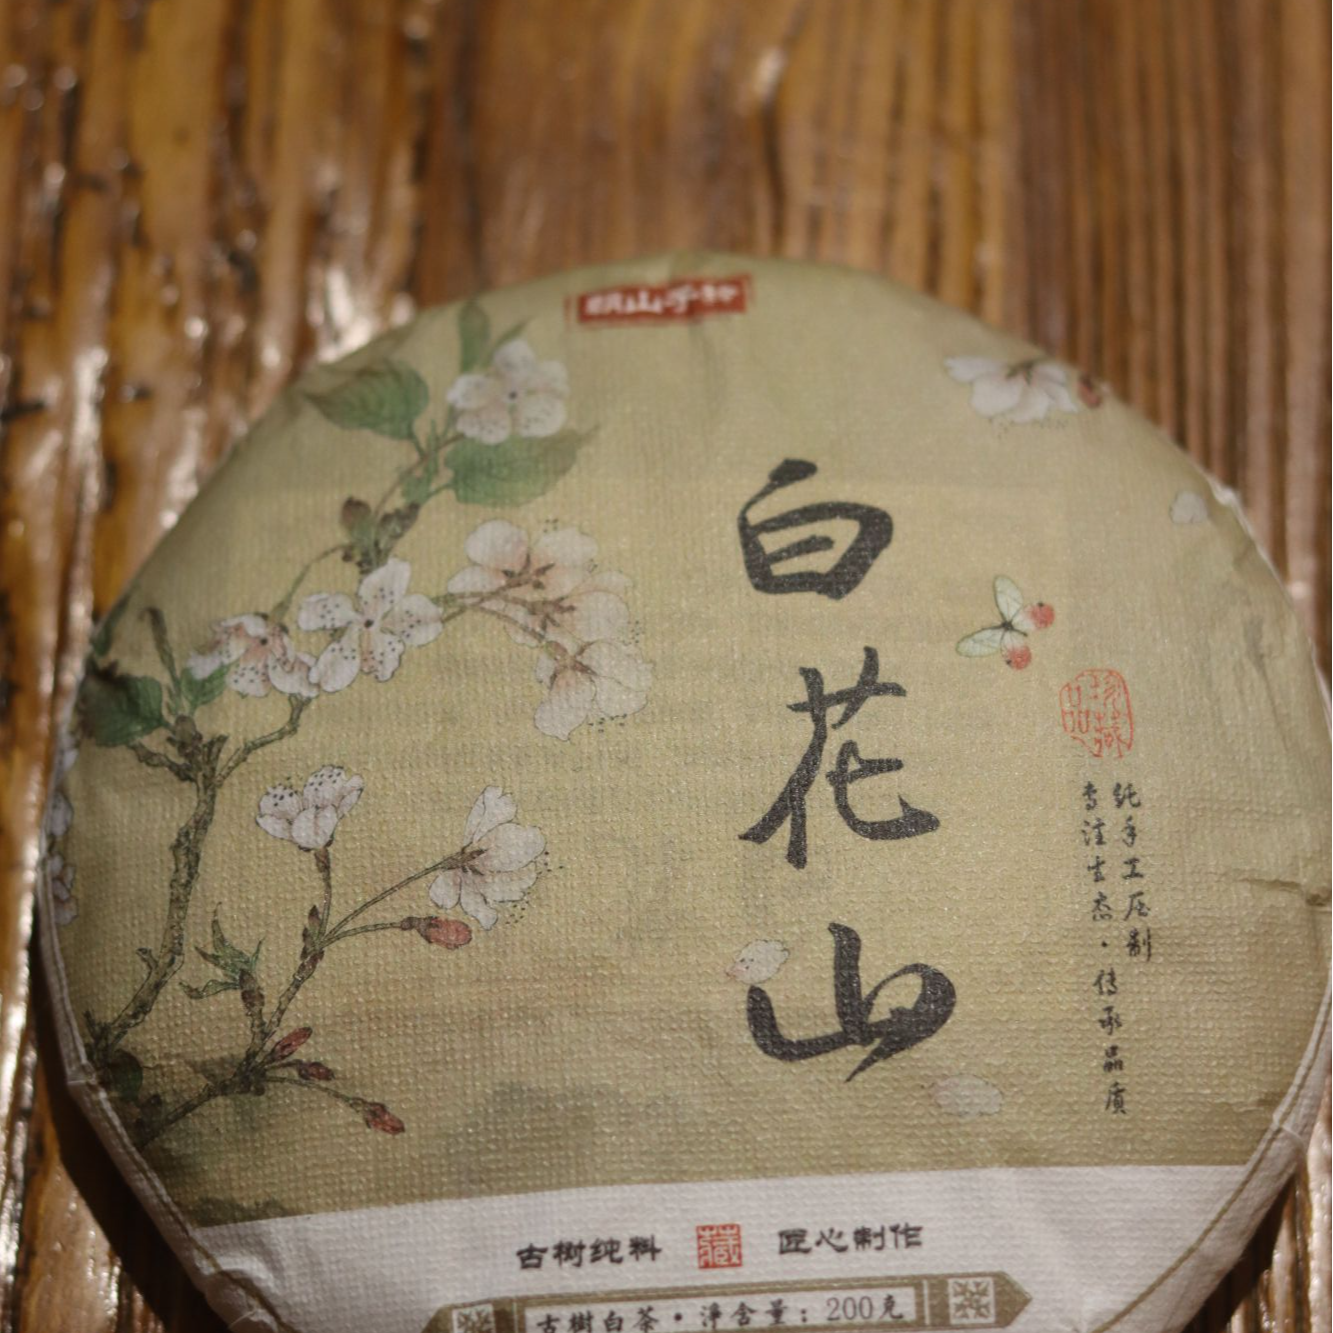 白花山
珍藏品
纯手工压制
专注生态·传承品质
古樹纯料 藏 匠心制作
古樹白茶·淨含量：200克